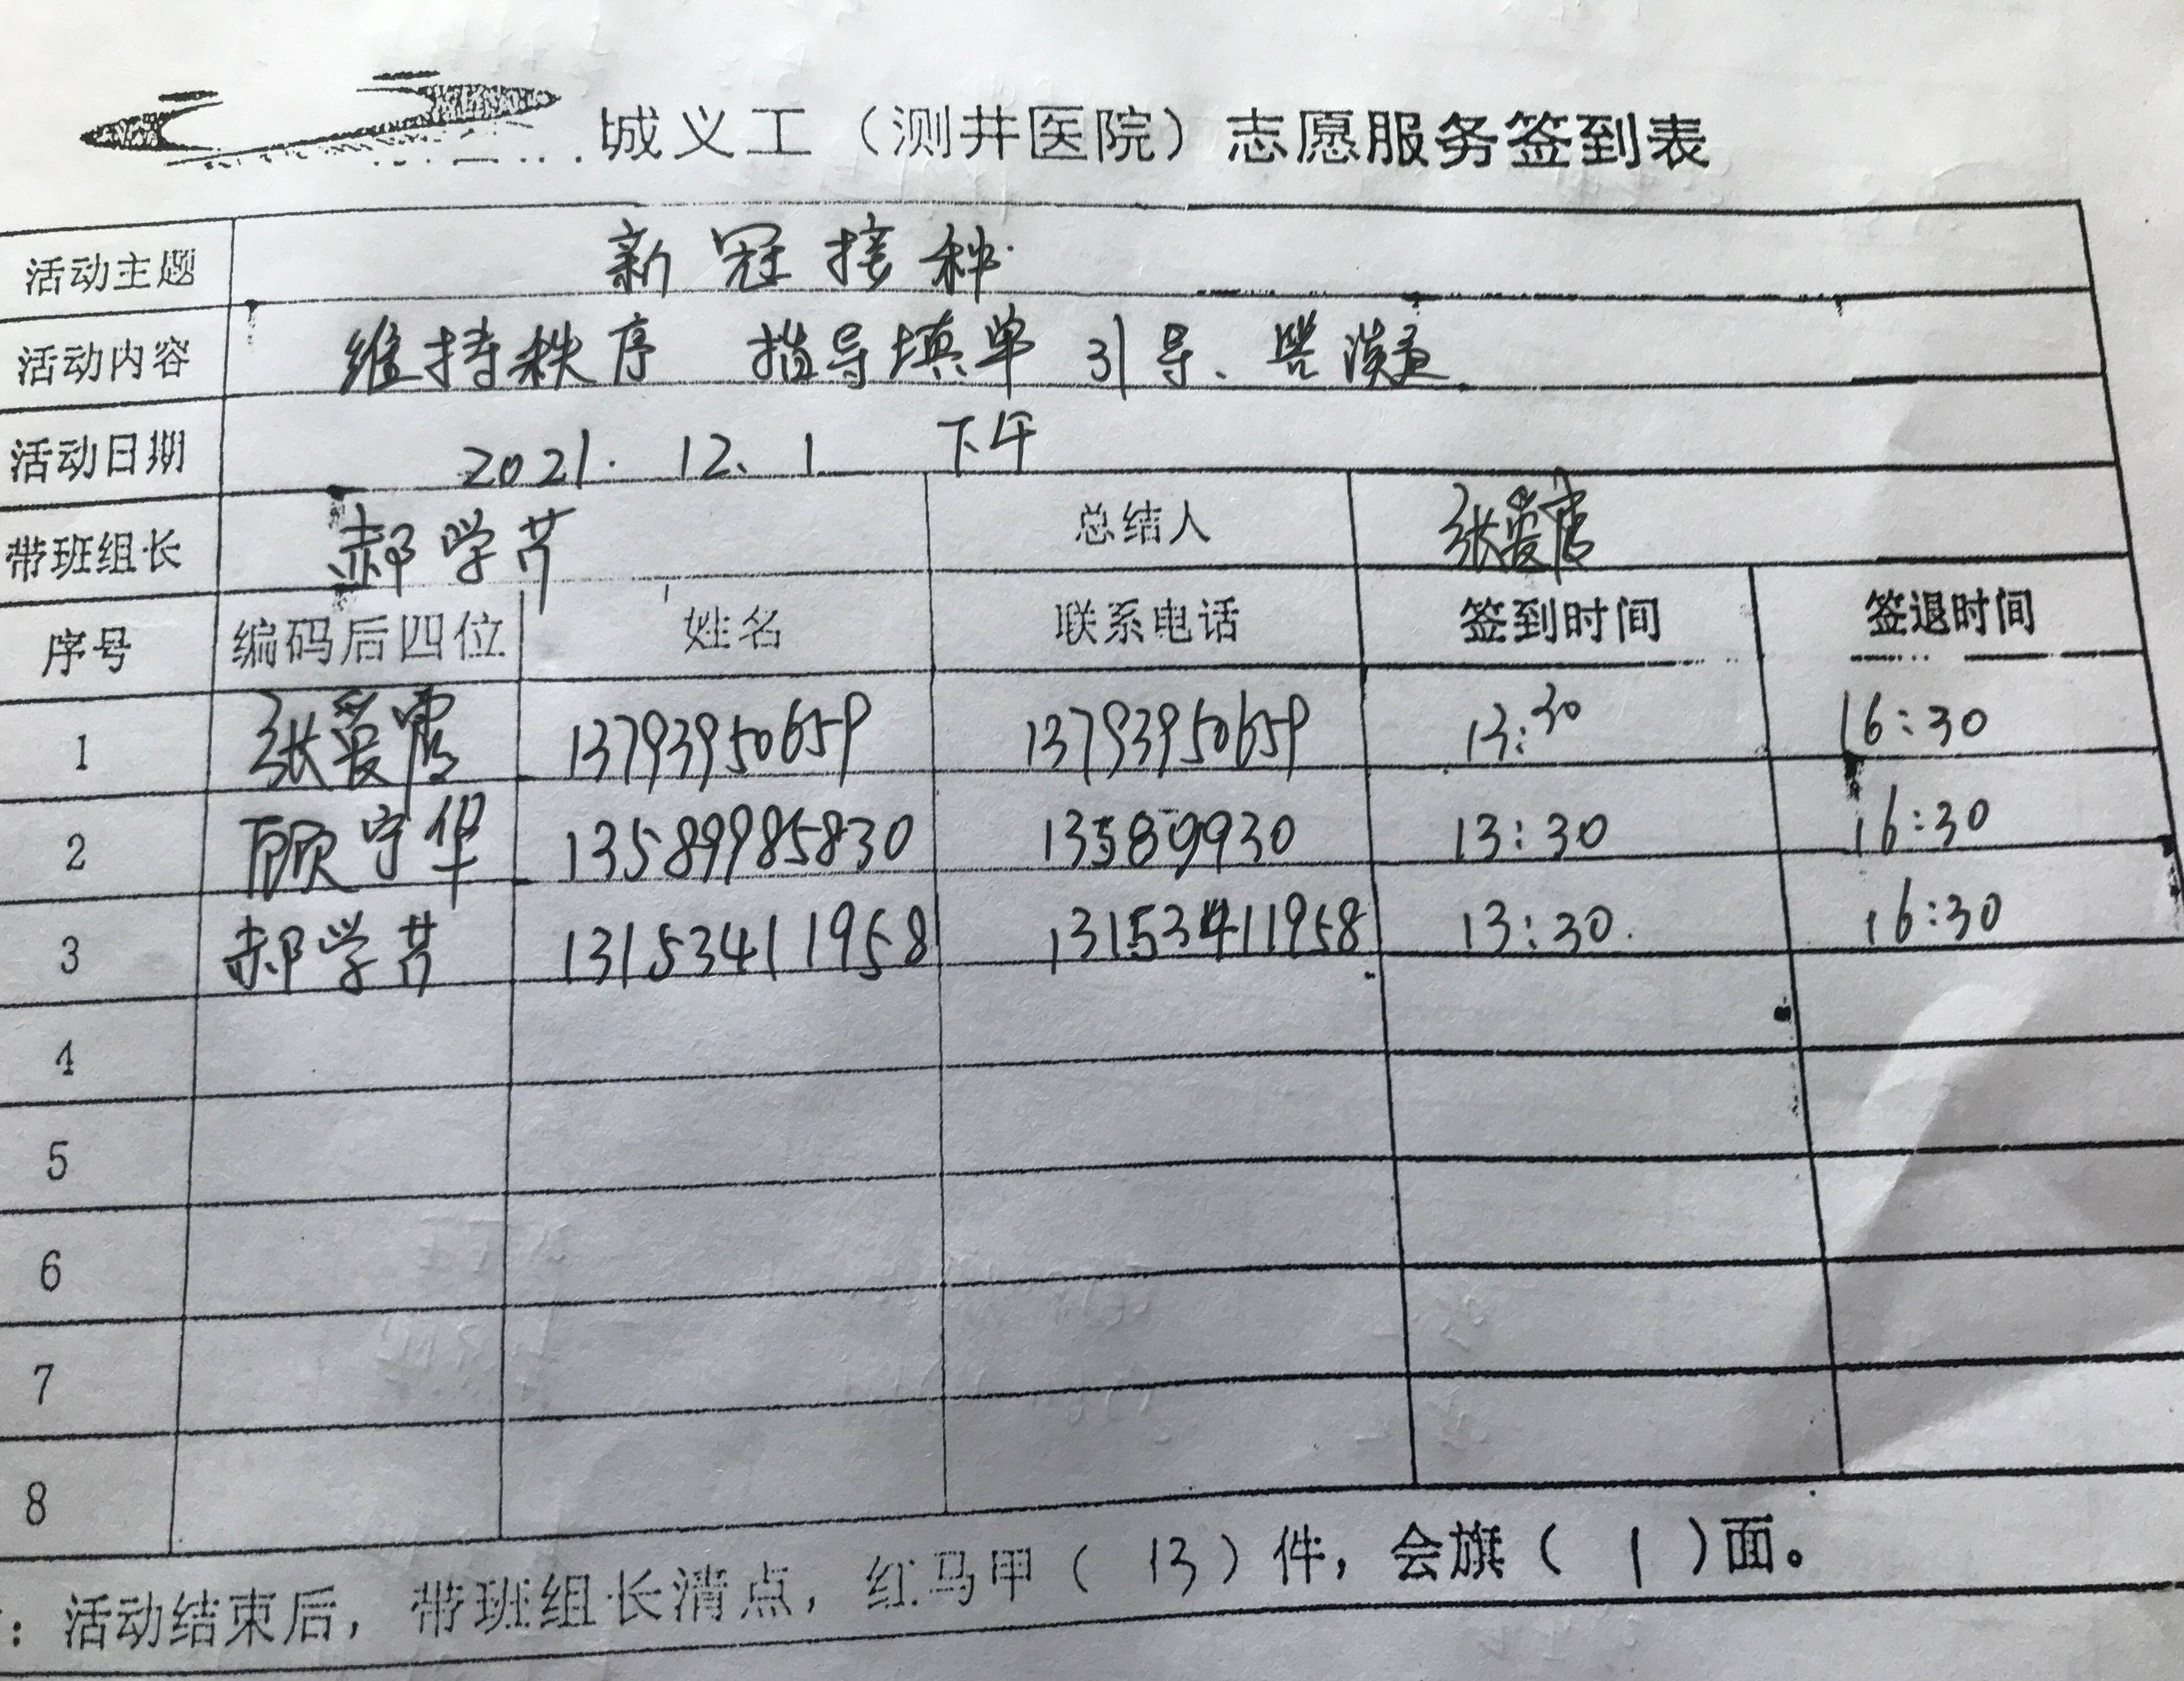 城义工（测井医院）志愿服务签到表
活动主题 新冠接种
活动内容 维持秩序 指导填单 引导、
活动日期 2021. 12、1 下午
带班组长 郝学芹 总结人 张爱霞
序号 编码后四位 姓名 联系电话 签到时间 签退时间
1 张爱霞 13793950659 13793950659 13:30 16:30
2 顾守华 13589985830 13589930 13:30 16:30
3 郝学芹 13153411958 13153411958 13:30. 16:30
4
5
6
7
8
：活动结束后，带班组长清点，红马甲（ 13 ）件，会旗（ 1 ）面。